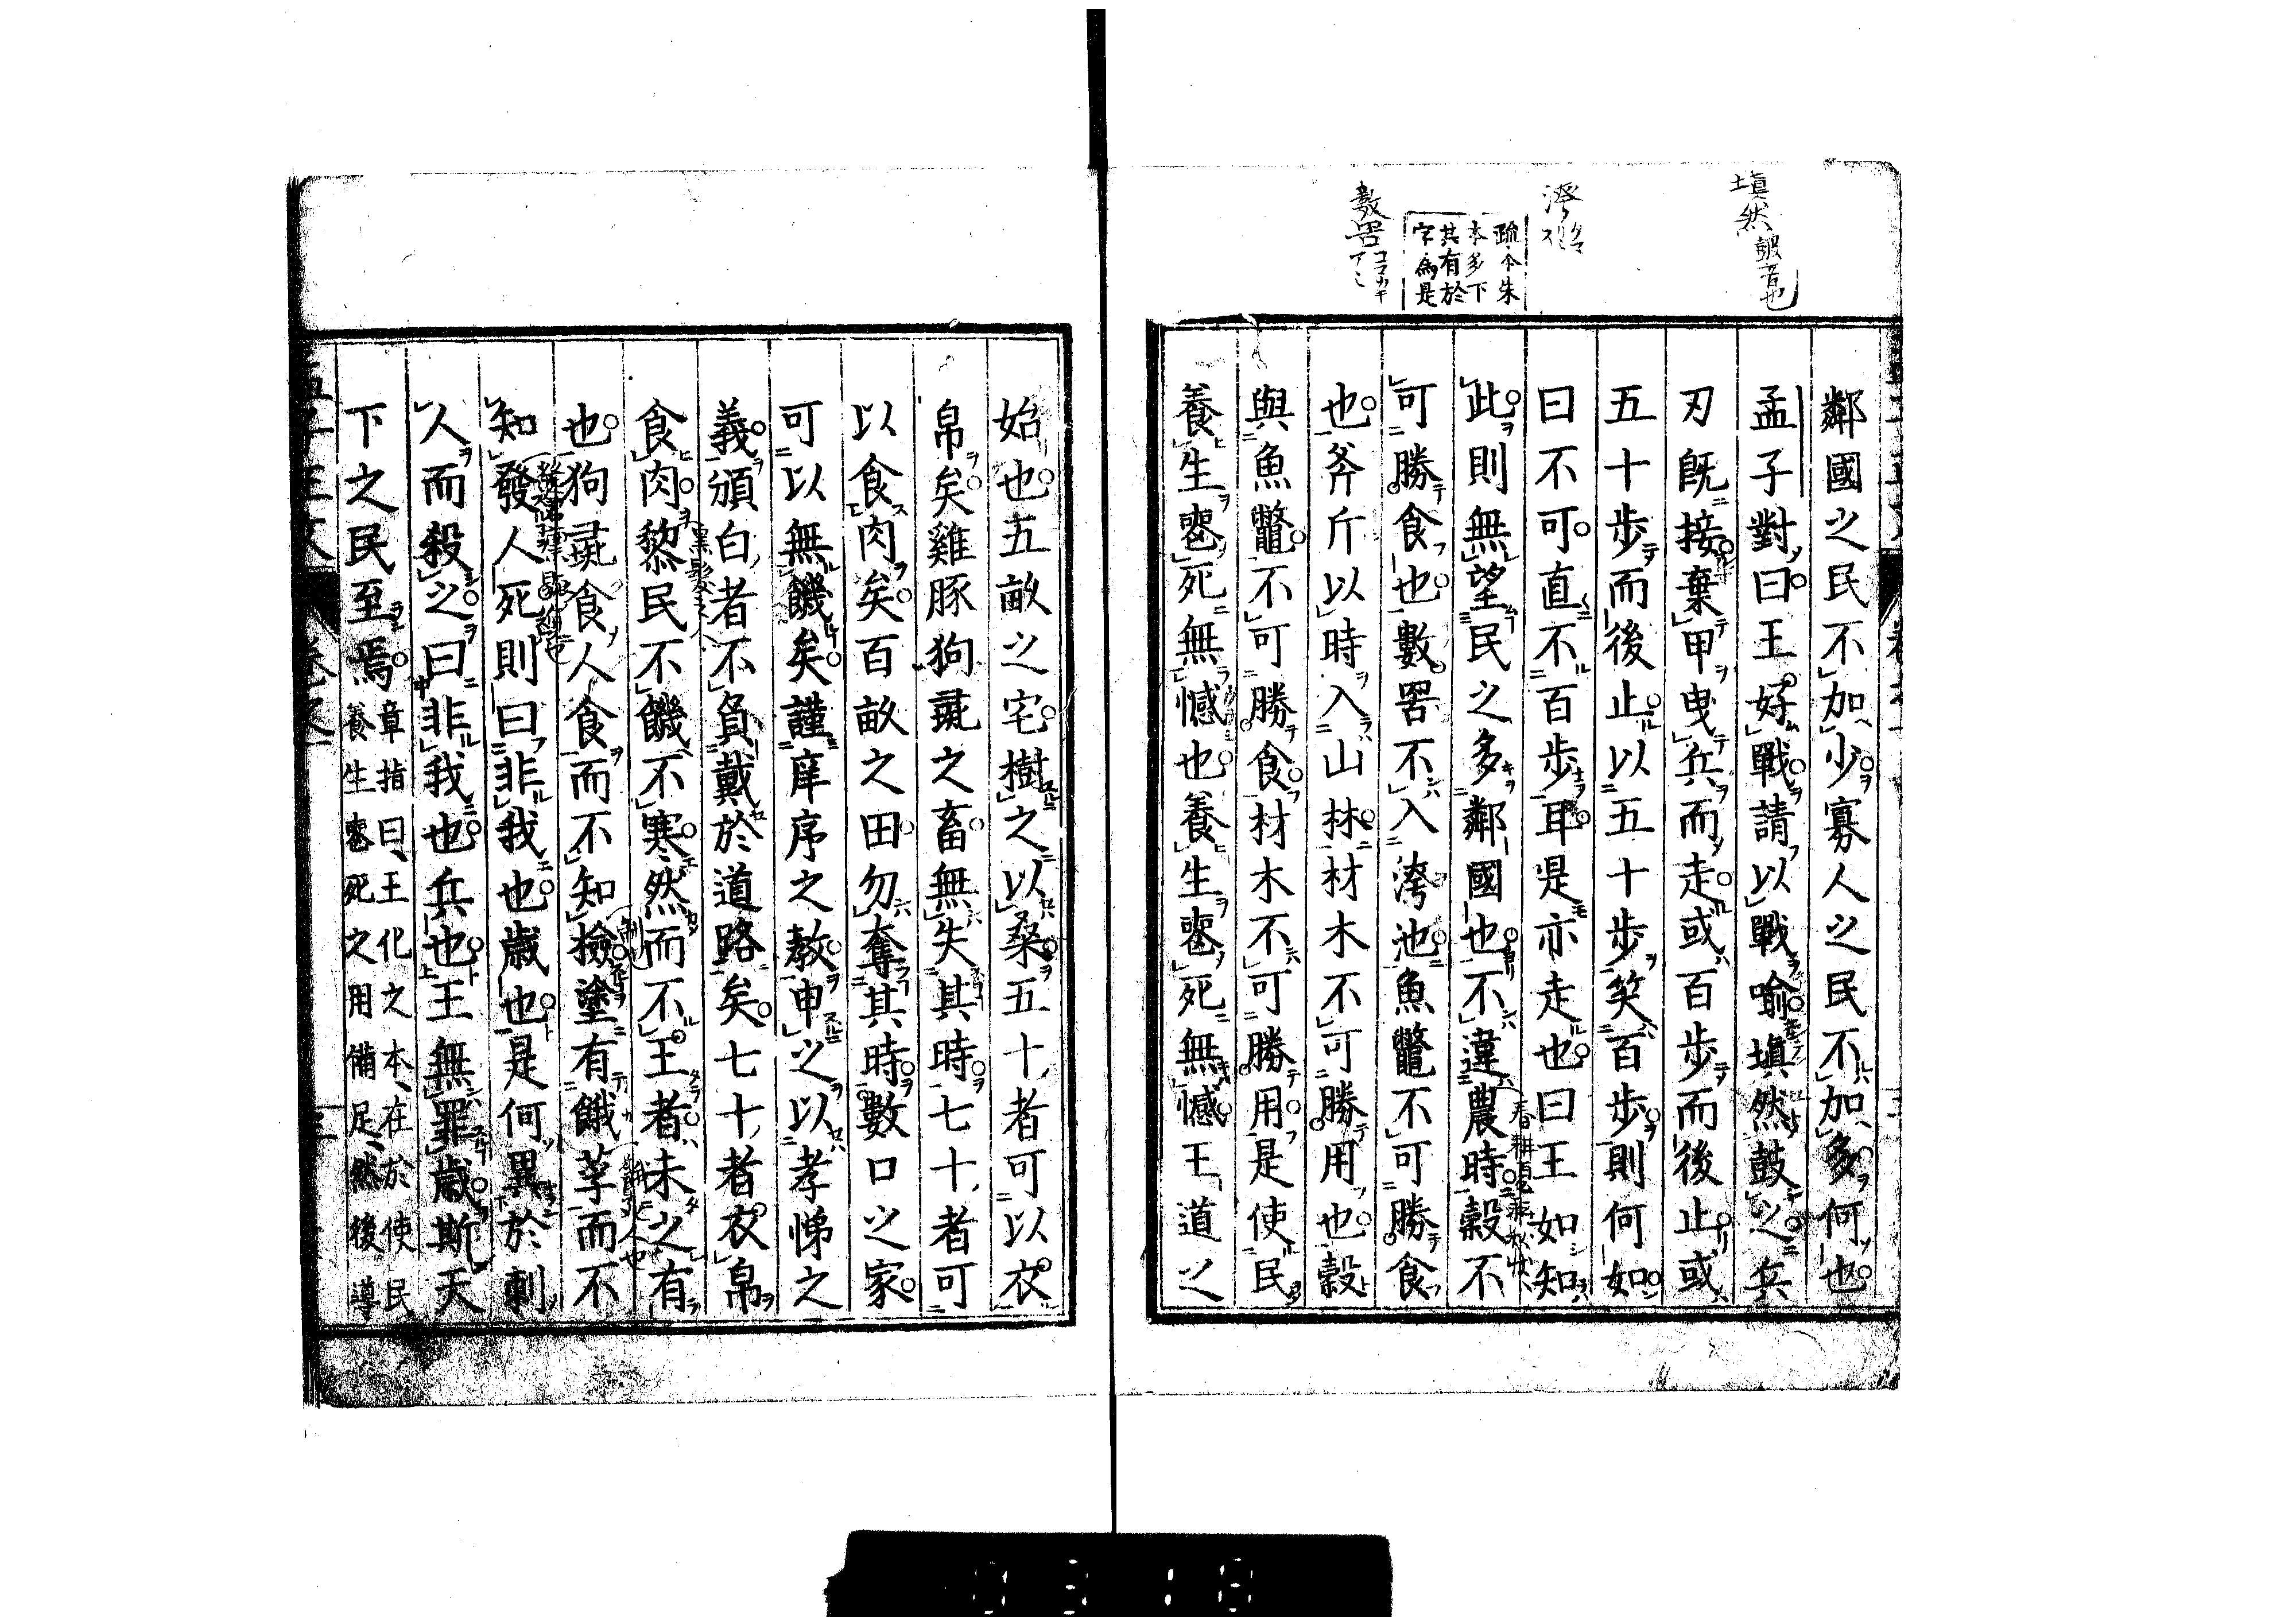 填然 鼓音也
洿
疏本朱
本多下
其有於
字為是
數罟 コマカキ アミ
鄰國之民不加少寡人之民不加多何也
孟子對曰王好戰請以戰喻填然鼓之兵
刃既接棄甲曳兵而走或百步而後止或
五十步而後止以五十步笑百步則何如
曰不可直不百步耳是亦走也曰王如知
此則無望民之多鄰國也不違農時穀不
可勝食也數罟不入洿池魚鼈不可勝食
也斧斤以時入山林材木不可勝用也穀
與魚鼈不可勝食材木不可勝用是使民
養生喪死無憾也養生喪死無憾王道之
始也五畝之宅樹之以桑五十者可以衣
帛矣雞豚狗彘之畜無失其時七十者可
以食肉矣百畝之田勿奪其時數口之家
可以無饑矣謹庠序之教申之以孝悌之
義頒白者不負戴於道路矣七十者衣帛
食肉黎民不饑不寒然而不王者未之有
也狗彘食人食而不知檢塗有餓莩而不
知發人死則曰非我也歲也是何異於刺
人而殺之曰非我也兵也王無罪歲斯天
下之民至焉
章指曰、王化之本、在於使民
養生喪死之用備足、然後導